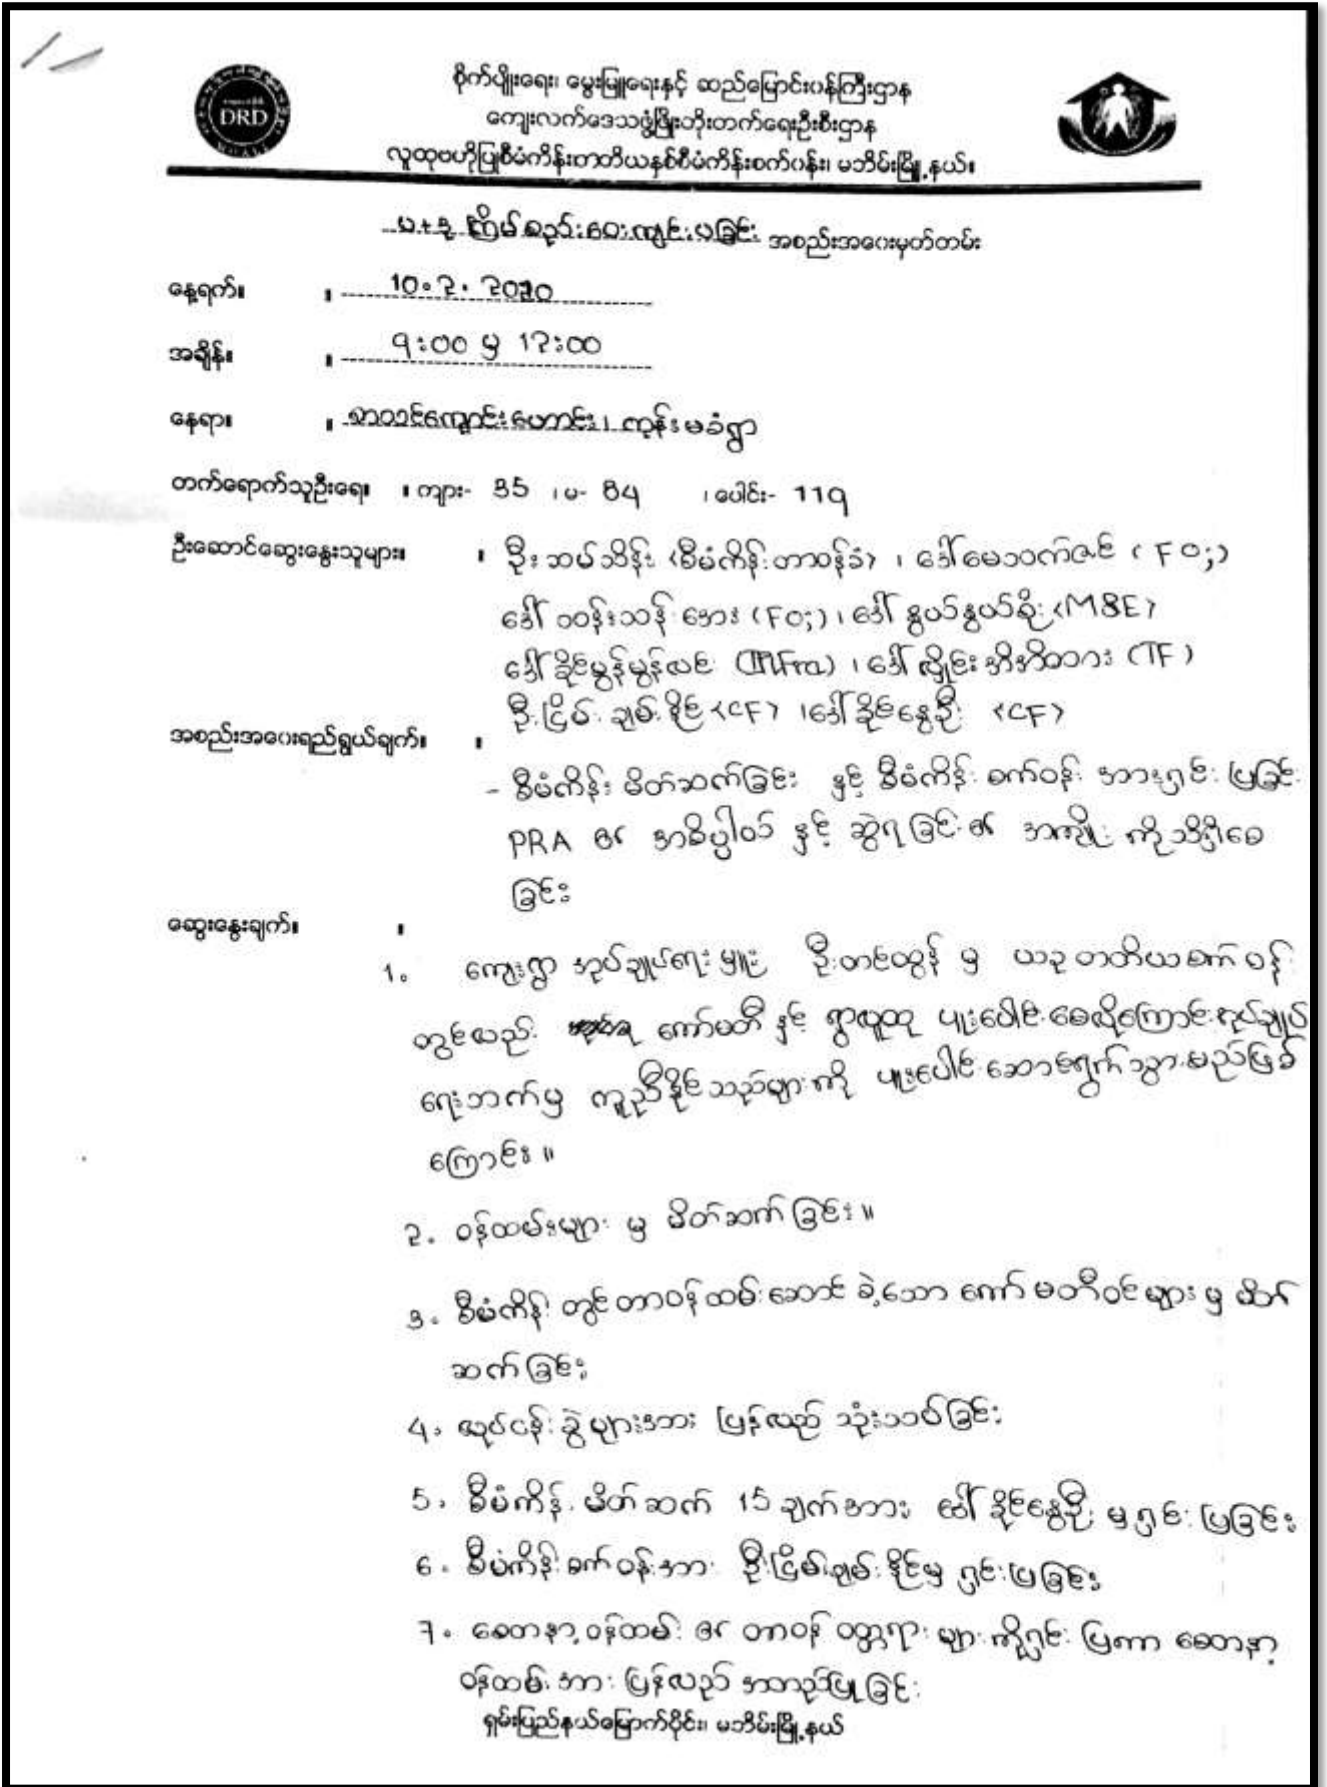 DRD
စိုက်ပျိုးရေး၊ မွေးမြူရေးနှင့် ဆည်မြောင်းဝန်ကြီးဌာန
ကျေးလက်ဒေသဖွံ့ဖြိုးတိုးတက်ရေးဦးစီးဌာန
လူထုဗဟိုပြုစီမံကိန်းတတိယနှစ်စီမံကိန်းစက်ဝန်း၊ မဘိမ်းမြို့နယ်။
ပ+ဒု ကြိမ်စည်းဝေးကျင်းပခြင်း အစည်းအဝေးမှတ်တမ်း
နေ့ရက်။ ။ 10.2.2020
အချိန်။ ။ 9:00 မှ 12:00
နေရာ။ ။ စာသင်ကျောင်းဟောင်း၊ ကုန်းမခံရွာ
တက်ရောက်သူဦးရေ။ ။ ကျား- 35 ၊ မ- 84 ၊ ပေါင်း- 119
ဦးဆောင်ဆွေးနွေးသူများ။ ။ ဦးဆမ်သိန်း (စီမံကိန်းတာဝန်ခံ) ၊ ဒေါ်မေသက်ဇင် (FO;)
ဒေါ်ဝန်းသန့်အေး (FO;)၊ ဒေါ်နွယ်နွယ်စိုး (M&E)
ဒေါ်ခိုင်မွန်မွန်လင်း (Infra) ၊ ဒေါ်လှိုင်းအိအိထား (TF)
ဦးငြိမ်းချမ်းနိုင် (CF) ၊ ဒေါ်ခိုင်နွေဦး (CF)
အစည်းအဝေးရည်ရွယ်ချက်။ ။
- စီမံကိန်း မိတ်ဆက်ခြင်း နှင့် စီမံကိန်း စက်ဝန်း အားရှင်းပြခြင်း
PRA ၏ အဓိပ္ပါယ် နှင့် ဆွဲရခြင်း၏ အကျိုး ကိုသိရှိစေ
ခြင်း
ဆွေးနွေးချက်။ ။
1. ကျေးရွာ အုပ်ချုပ်ရေးမှူး ဦးတင်ထွန် မှ ယခု တတိယစက်ဝန်း
တွင်လည်း ကော်မတီ နှင့် ရွာလူထု ပူးပေါင်းစေလိုကြောင်း အုပ်ချုပ်
ရေးဘက်မှ ကူညီနိုင်သည်များကို ပူးပေါင်းဆောင်ရွက်သွားမည်ဖြစ်
ကြောင်း။
2. ဝန်ထမ်းများ မှ မိတ်ဆက်ခြင်း။
3. စီမံကိန်းတွင် တာဝန်ထမ်းဆောင်ခဲ့သော ကော်မတီဝင်များ မှ မိတ်
ဆက်ခြင်း
4. လုပ်ငန်းခွဲများအား ပြန်လည် သုံးသပ်ခြင်း
5. စီမံကိန်း မိတ်ဆက် 15 ချက်အား ဒေါ်ခိုင်နွေဦး မှရှင်းပြခြင်း
6. စီမံကိန်းစက်ဝန်းအား ဦးငြိမ်းချမ်းနိုင်မှ ရှင်းပြခြင်း
7. စေတနာ့ဝန်ထမ်း ၏ တာဝန် ဝတ္တရားများကိုရှင်းပြကာ စေတနာ့
ဝန်ထမ်းအား ပြန်လည် အတည်ပြုခြင်း
ရှမ်းပြည်နယ်မြောက်ပိုင်း၊ မဘိမ်းမြို့နယ်